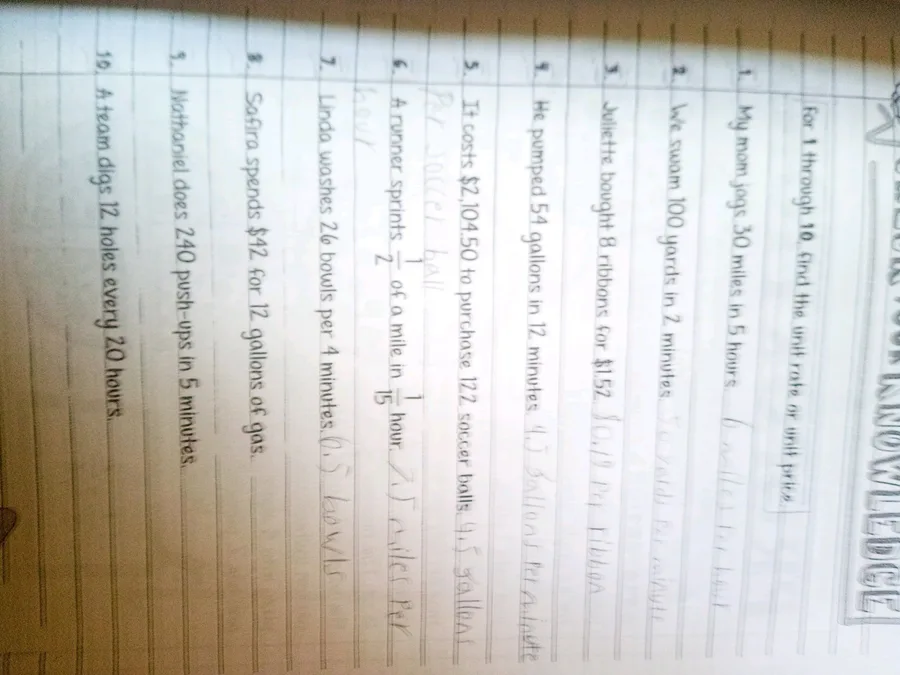 YOUR KNOWLEDGE
For 1 through 10, find the unit rate or unit price.
1. My mom jogs 30 miles in 5 hours. 6 miles per hour
2. We swam 100 yards in 2 minutes. 50 yards per minute
3. Juliette bought 8 ribbons for $1.52. $0.19 per ribbon
4. He pumped 54 gallons in 12 minutes. 4.5 gallons per minute
5. It costs $2,104.50 to purchase 122 soccer balls. 4.5 gallons
Per soccer ball
6. A runner sprints 1/2 of a mile in 1/15 hour. 7.5 miles Per
hour
7. Linda washes 26 bowls per 4 minutes. 6.5 bowls
8. Safira spends $42 for 12 gallons of gas.
9. Nathaniel does 240 push-ups in 5 minutes.
10. A team digs 12 holes every 20 hours.